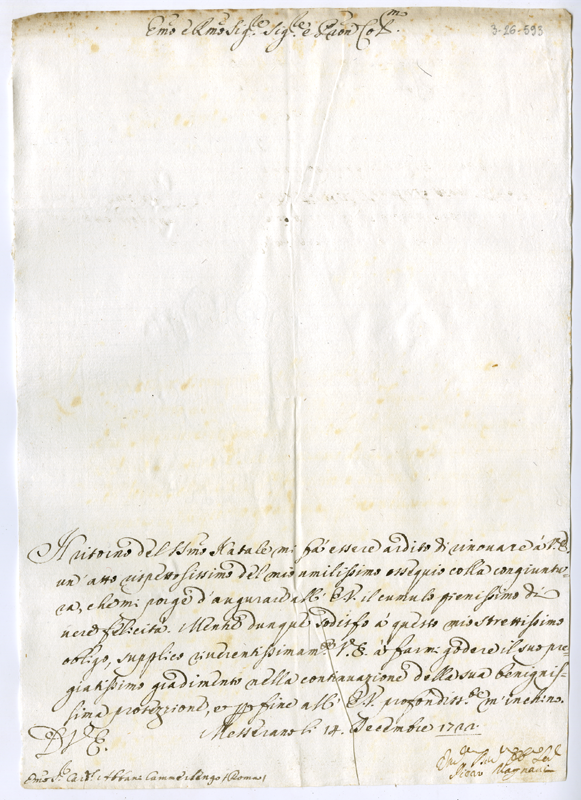 Emo e Rmo Sig.re Sig.re e Pron Col.mo
3-26-593
Il ritorno del SSmo Natale mi fà essere ardito di rinovare à V.E.
un'atto rispettosissimo del mio umilissimo ossequio colla congiuntu-
ra, che mi porge d'augurare all'E.V. il cumulo pienissimo di
vere felicità. Mentre dunque sodisfo à questo mio strettissimo
obligo, supplico riverentissimam.e V.E. à farmi godere il suo pre-
giatissimo gradimento nella continuazione della sua benignis-
sima protezione, e per fine all'E.V. profondiss.e m'inchino.
Messerano li 14. Decembre 1722.
D V.E.
Emo S.r Card.l Albani Cammerlengo (Roma)